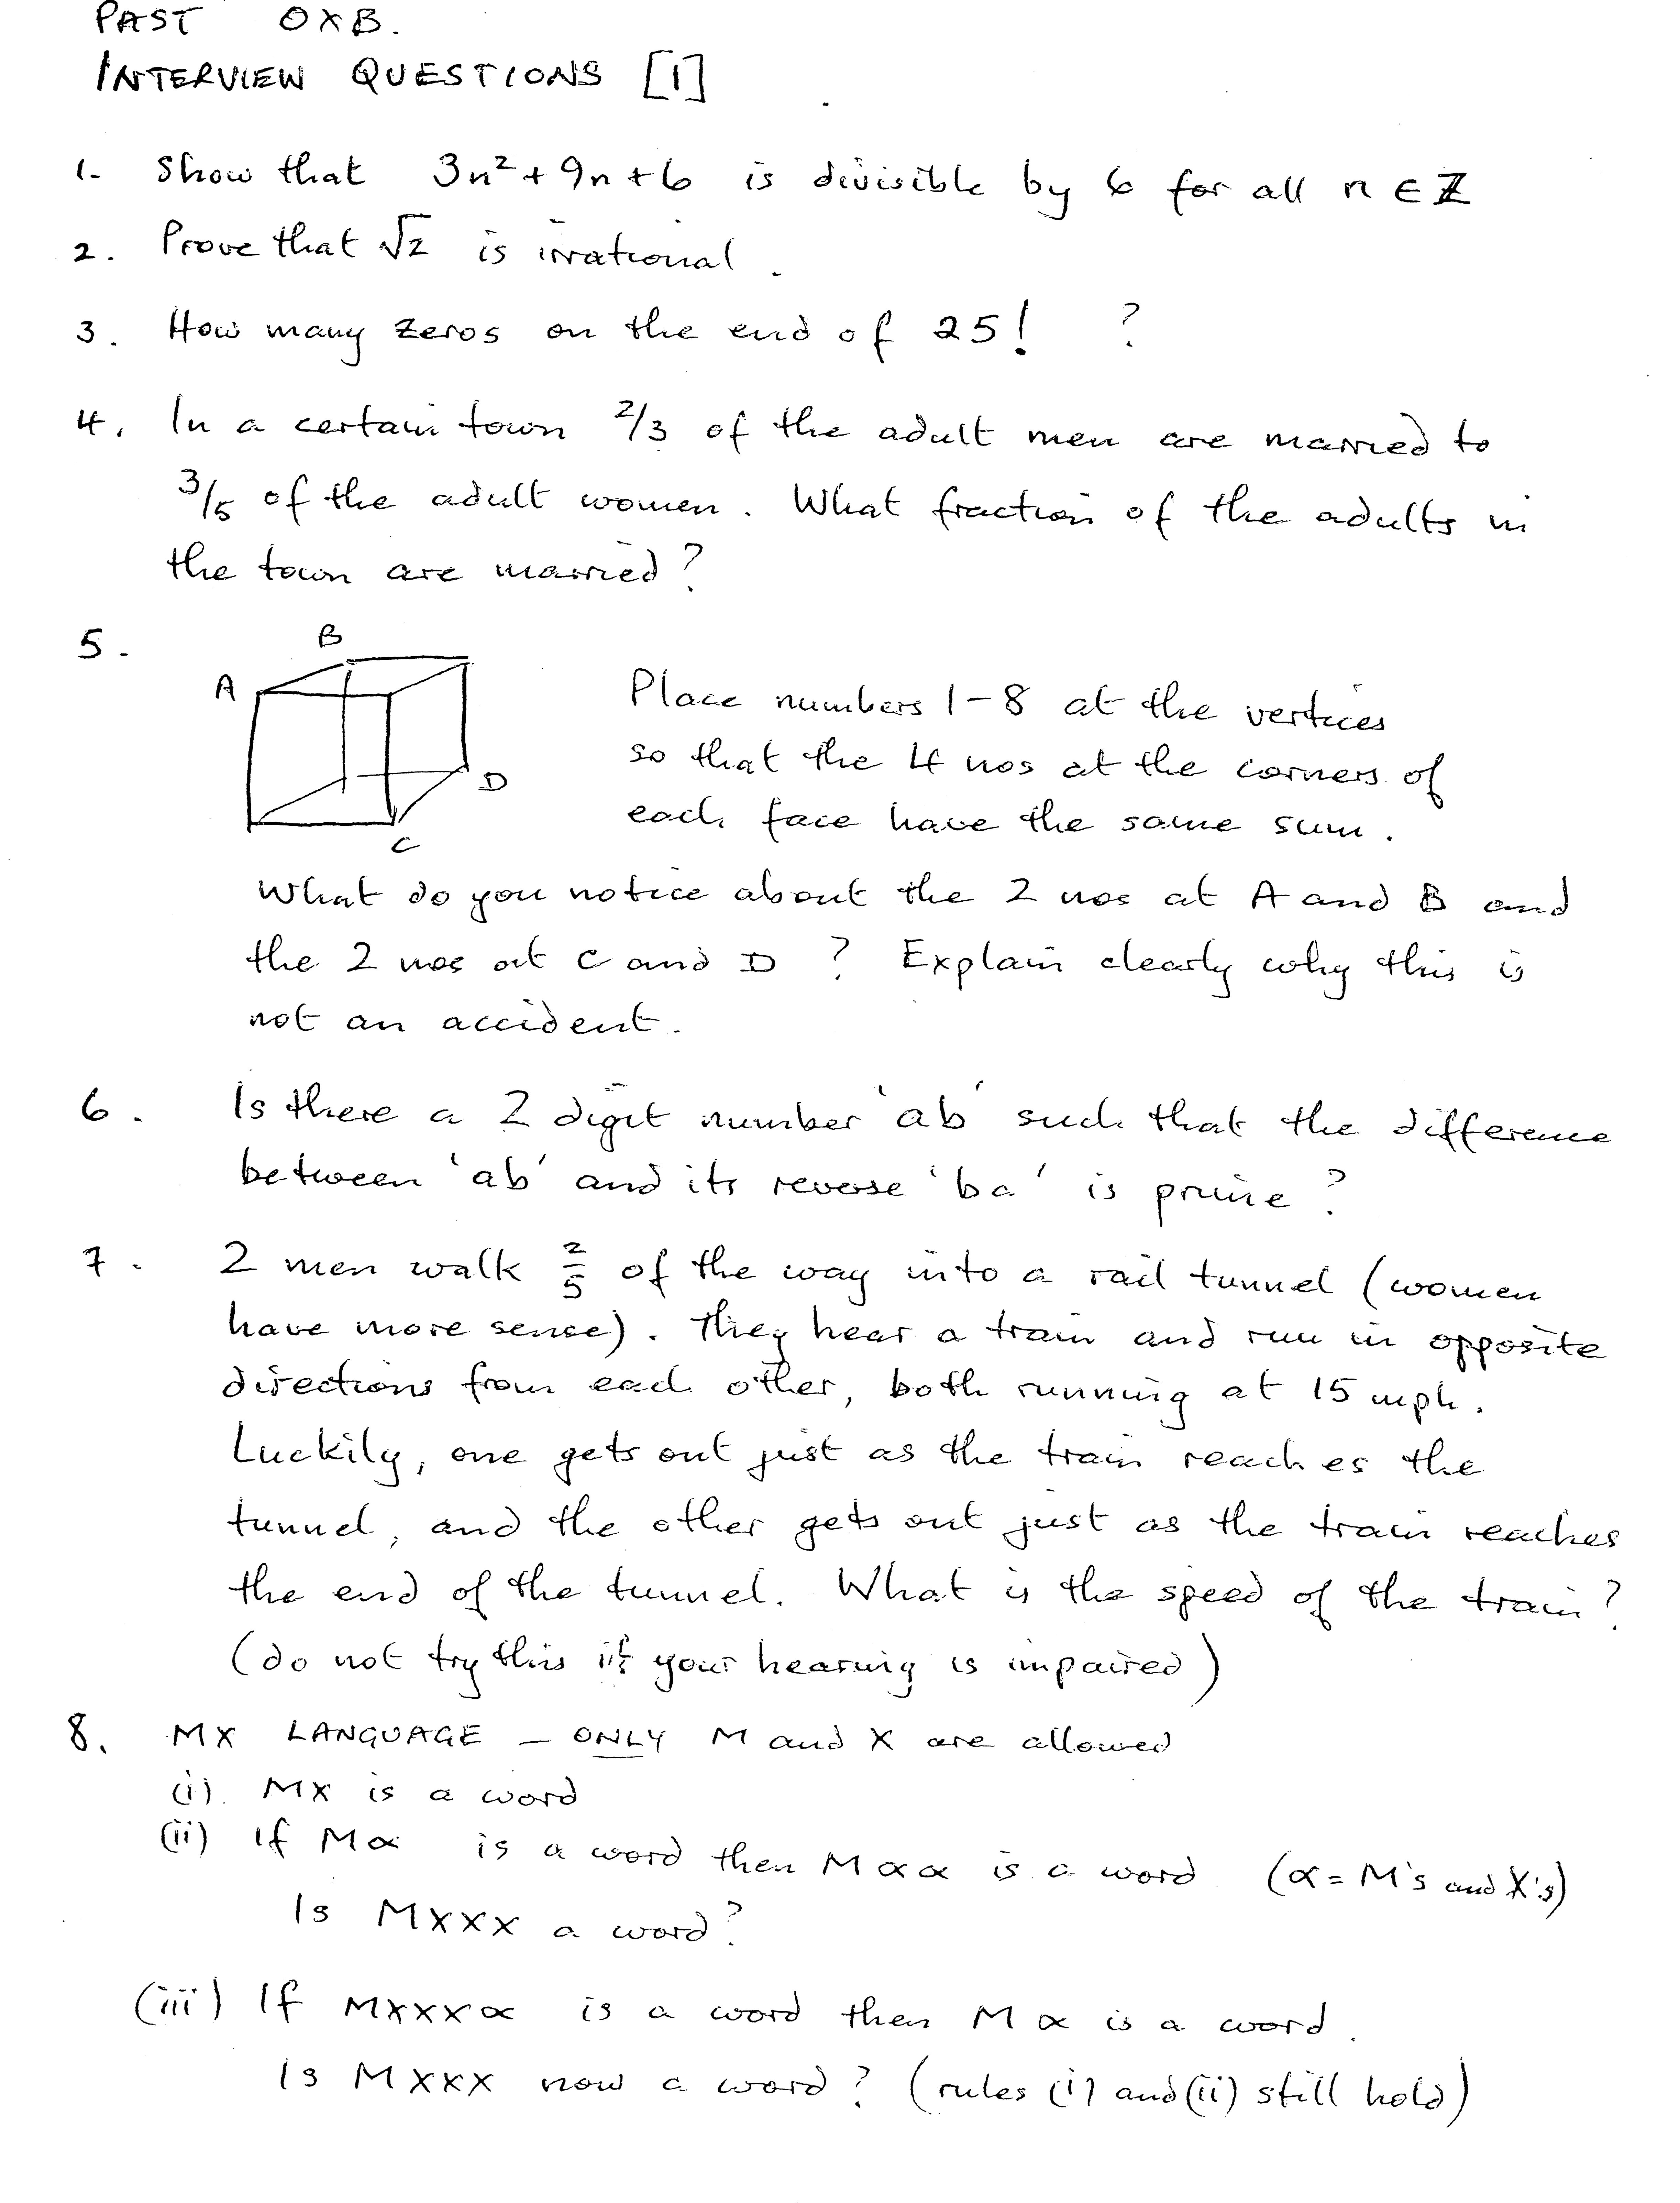 PAST OXB.
INTERVIEW QUESTIONS [1]
1. Show that 3n² + 9n + 6 is divisible by 6 for all n ∈ ℤ
2. Prove that √2 is irrational.
3. How many zeros on the end of 25! ?
4. In a certain town 2/3 of the adult men are married to
3/5 of the adult women. What fraction of the adults in
the town are married?
5.
B
A
D
C
Place numbers 1-8 at the vertices
so that the 4 nos at the corners of
each face have the same sum.
What do you notice about the 2 nos at A and B and
the 2 nos at C and D ? Explain clearly why this is
not an accident.
6. Is there a 2 digit number 'ab' such that the difference
between 'ab' and its reverse 'ba' is prime ?
7. 2 men walk 2/5 of the way into a rail tunnel (women
have more sense). They hear a train and run in opposite
directions from each other, both running at 15 mph.
Luckily, one gets out just as the train reaches the
tunnel, and the other gets out just as the train reaches
the end of the tunnel. What is the speed of the train?
(do not try this if your hearing is impaired)
8. MX LANGUAGE - ONLY M and X are allowed
(i). MX is a word
(ii) If Mα is a word then Mαα is a word (α = M's and X's)
Is MXXX a word?
(iii) If MXXXα is a word then Mα is a word.
Is MXXX now a word? (rules (i) and (ii) still hold)